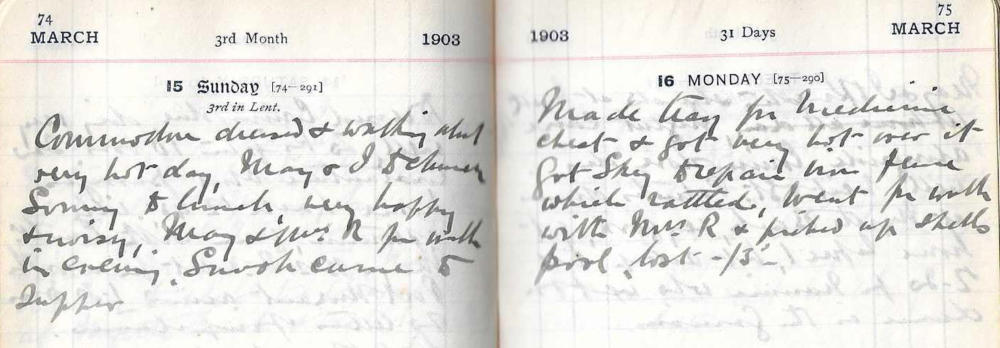 74
MARCH
3rd Month
1903
15 Sunday [74-291]
3rd in Lent.
Commodore dressed & walking about
very hot day, May & I to church
Sonny to lunch, very happy
& noisy, May & Mrs R for walk
in evening, came to
Supper
1903
31 Days
75
MARCH
16 MONDAY [75-290]
Made tray for medicine
chest & got very hot over it
Got to repair iron fence
which rattled, went for walk
with Mrs R & picked up shells
pool lost -/3-